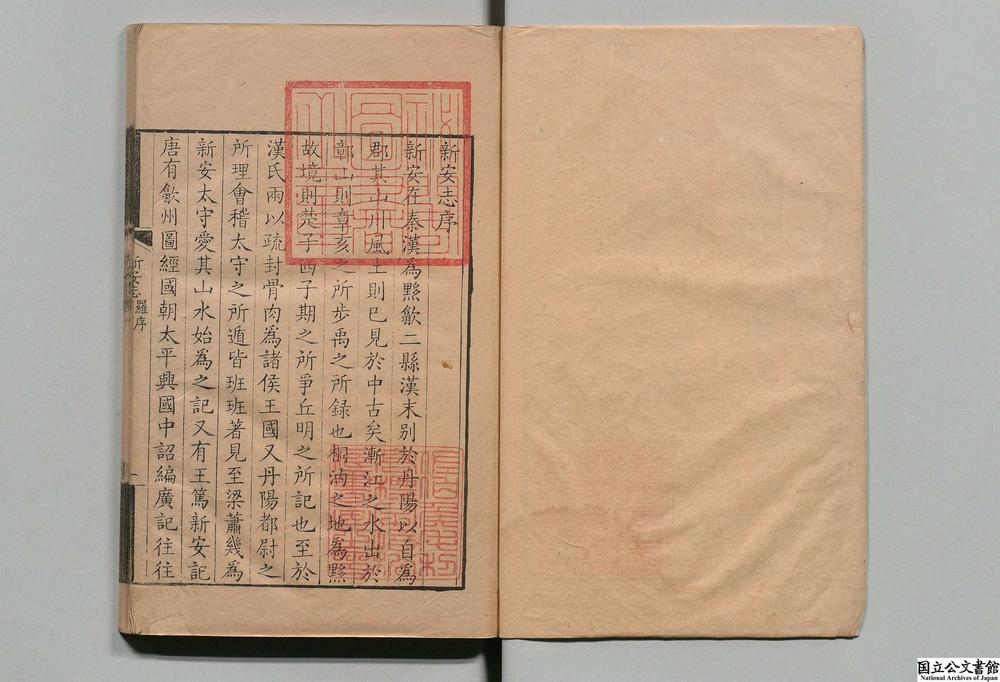 新安志序
新安在秦漢為黟歙二縣漢末別於丹陽以自為
郡其山川風土則已見於中古矣漸江之水出於
鄣山則章亥之所步禹之所録也桐汭之地為黟
故境則楚子西子期之所爭丘明之所記也至於
漢氏兩以疏封骨肉為諸侯王國又丹陽都尉之
所理會稽太守之所遁皆班班著見至梁蕭幾為
新安太守愛其山水始為之記又有王篤新安記
唐有歙州圖經國朝太平興國中詔編廣記往往
新安志 羅序
一
国立公文書館
National Archives of Japan